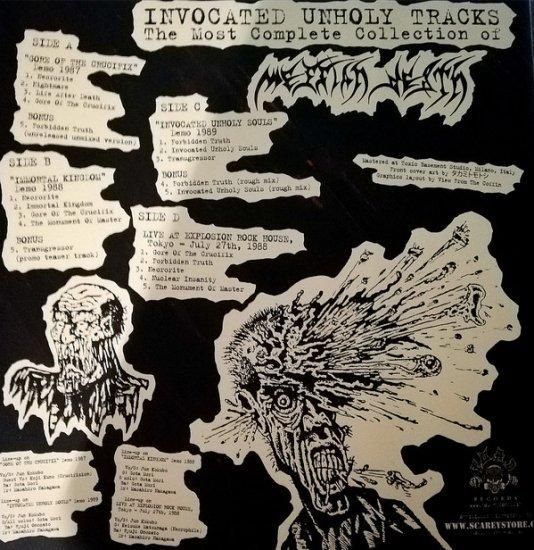 INVOCATED UNHOLY TRACKS
The Most Complete Collection of
MESSIAH DEATH
SIDE A
"GORE OF THE CRUCIFIX"
Demo 1987
1. Necrorite
2. Nightmare
3. Life After Death
4. Gore Of The Crucifix
BONUS
5. Forbidden Truth
(unreleased unmixed version)
SIDE B
"IMMORTAL KINGDOM"
Demo 1988
1. Necrorite
2. Immortal Kingdom
3. Gore Of The Crucifix
4. The Monument Of Master
BONUS
5. Transgressor
(promo teaser track)
SIDE C
"INVOCATED UNHOLY SOULS"
Demo 1989
1. Forbidden Truth
2. Invocated Unholy Souls
3. Transgressor
BONUS
4. Forbidden Truth (rough mix)
5. Invocated Unholy Souls (rough mix)
SIDE D
LIVE AT EXPLOSION ROCK HOUSE,
Tokyo - July 27th, 1988
1. Gore Of The Crucifix
2. Forbidden Truth
3. Necrorite
4. Nuclear Insanity
5. The Monument Of Master
Mastered at Toxic Basement Studio, Milano, Italy
Front cover art by
Graphics layout by View From The Coffin
Line-up on
"GORE OF THE CRUCIFIX" Demo 1987
Vo/G: Jun Kokubo
Dr: Masahiro Hanagawa
Line-up on
"INVOCATED UNHOLY SOULS" Demo 1989
Vo/G: Jun Kokubo
Dr: Masahiro Hanagawa
Line-up on
"IMMORTAL KINGDOM" Demo 1988
Vo/G: Jun Kokubo
Dr: Masahiro Hanagawa
Line-up on
LIVE AT EXPLOSION ROCK HOUSE,
Tokyo - July 27th, 1988
Vo/G: Jun Kokubo
Dr: Masahiro Hanagawa
RECORDS
WWW.SCAREYSTORE.C